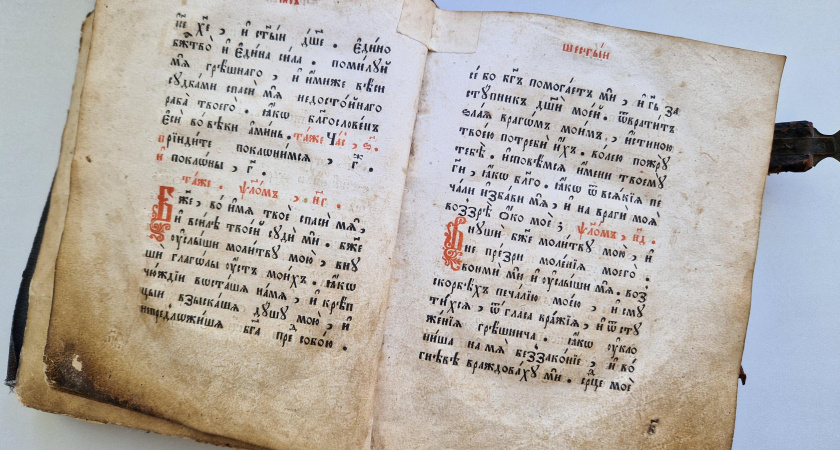 сн҃е хс҃е, и҆ ст҃ы́и дш҃е. є҆ди́но
бж҃тво̀ и҆ є҆ди́на си́ла. поми́лꙋй
мѧ̀ грѣ́шнаго, и҆ и҆́миже вѣ́си
сꙋдба́ми спаси́ мѧ недосто́йнаго
раба̀ твоего̀. ꙗ҆́кѡ бл҃гослове́нъ
є҆сѝ во вѣ́ки а҆ми́нь. та́же ча́с, ѕ҃.
прїиди́те поклони́мсѧ, г҃.
и҆ покло́ны, г҃.
та́же. ѱало́мъ, н҃г.
Бж҃е, во и҆́мѧ твоѐ спаси́ мѧ,
и҆ в си́лѣ твое́й сꙋди́ ми. бж҃е
ᲂу҆слы́ши моли́твꙋ мою̀, внꙋ
шѝ глаго́лы ᲂу҆́стъ мои́хъ. ꙗ҆́кѡ
чю́ждїи воста́ша на́ мѧ, и҆ крѣ́п
цыи взыска́ша дꙋ́шꙋ мою̀, и҆
не предложи́ша бг҃а пред̾ собо́ю.
шесты́и
се́ бо бг҃ъ помога́етъ ми, и҆ гь҃ за
стꙋ́пникъ дш҃и мое́й. ѿврати́тъ
ѕла́ѧ враго́мъ мои́мъ, и҆́стиною
твое́ю потребѝ и҆́хъ. во́лею пожрꙋ̀
тебѣ̀. и҆сповѣ́мсѧ и҆́мени твоемꙋ̀
гд҃и, ꙗ҆́кѡ бл҃го. ꙗ҆́кѡ ѿ всѧ́кїѧ пе
ча́ли и҆зба́ви мѧ, и҆ на врагѝ моѧ̀
воззрѣ̀ ѻ҆́ко моѐ ⁖ ѱало́мъ, н҃д.
Внꙋшѝ бж҃е моли́твꙋ мою̀, и҆
не пре́зри моле́нїѧ моего̀.
вонми́ ми и҆ ᲂу҆слы́ши мѧ. воз
скорбѣ́хъ печа́лїю мое́ю, и҆ смꙋ
ти́хсѧ, ѿ гла́са вра́жїѧ, и҆ ѿ стꙋ
же́нїѧ грѣ́шнича. ꙗ҆́кѡ ᲂу҆кло
ни́ша на́ мѧ беззако́нїе, и҆ во́
гнѣвѣ враждова́хꙋ ми. се́рдце моѐ